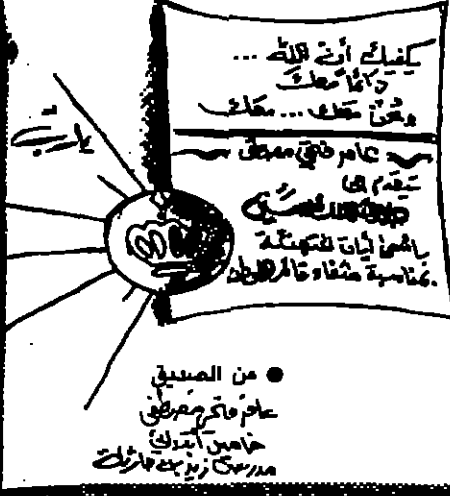 يكفيك أن الله ...
دائمًا معك
ونحن معك ... معك
يارب
عامر فتحي مصطفى
يتقدم إلى
بأسمى آيات التهنئة
بمناسبة شفاء
الله
● من الصديق
عامر فتحي مصطفى
خامس
مدرسة زيد بن حارثة